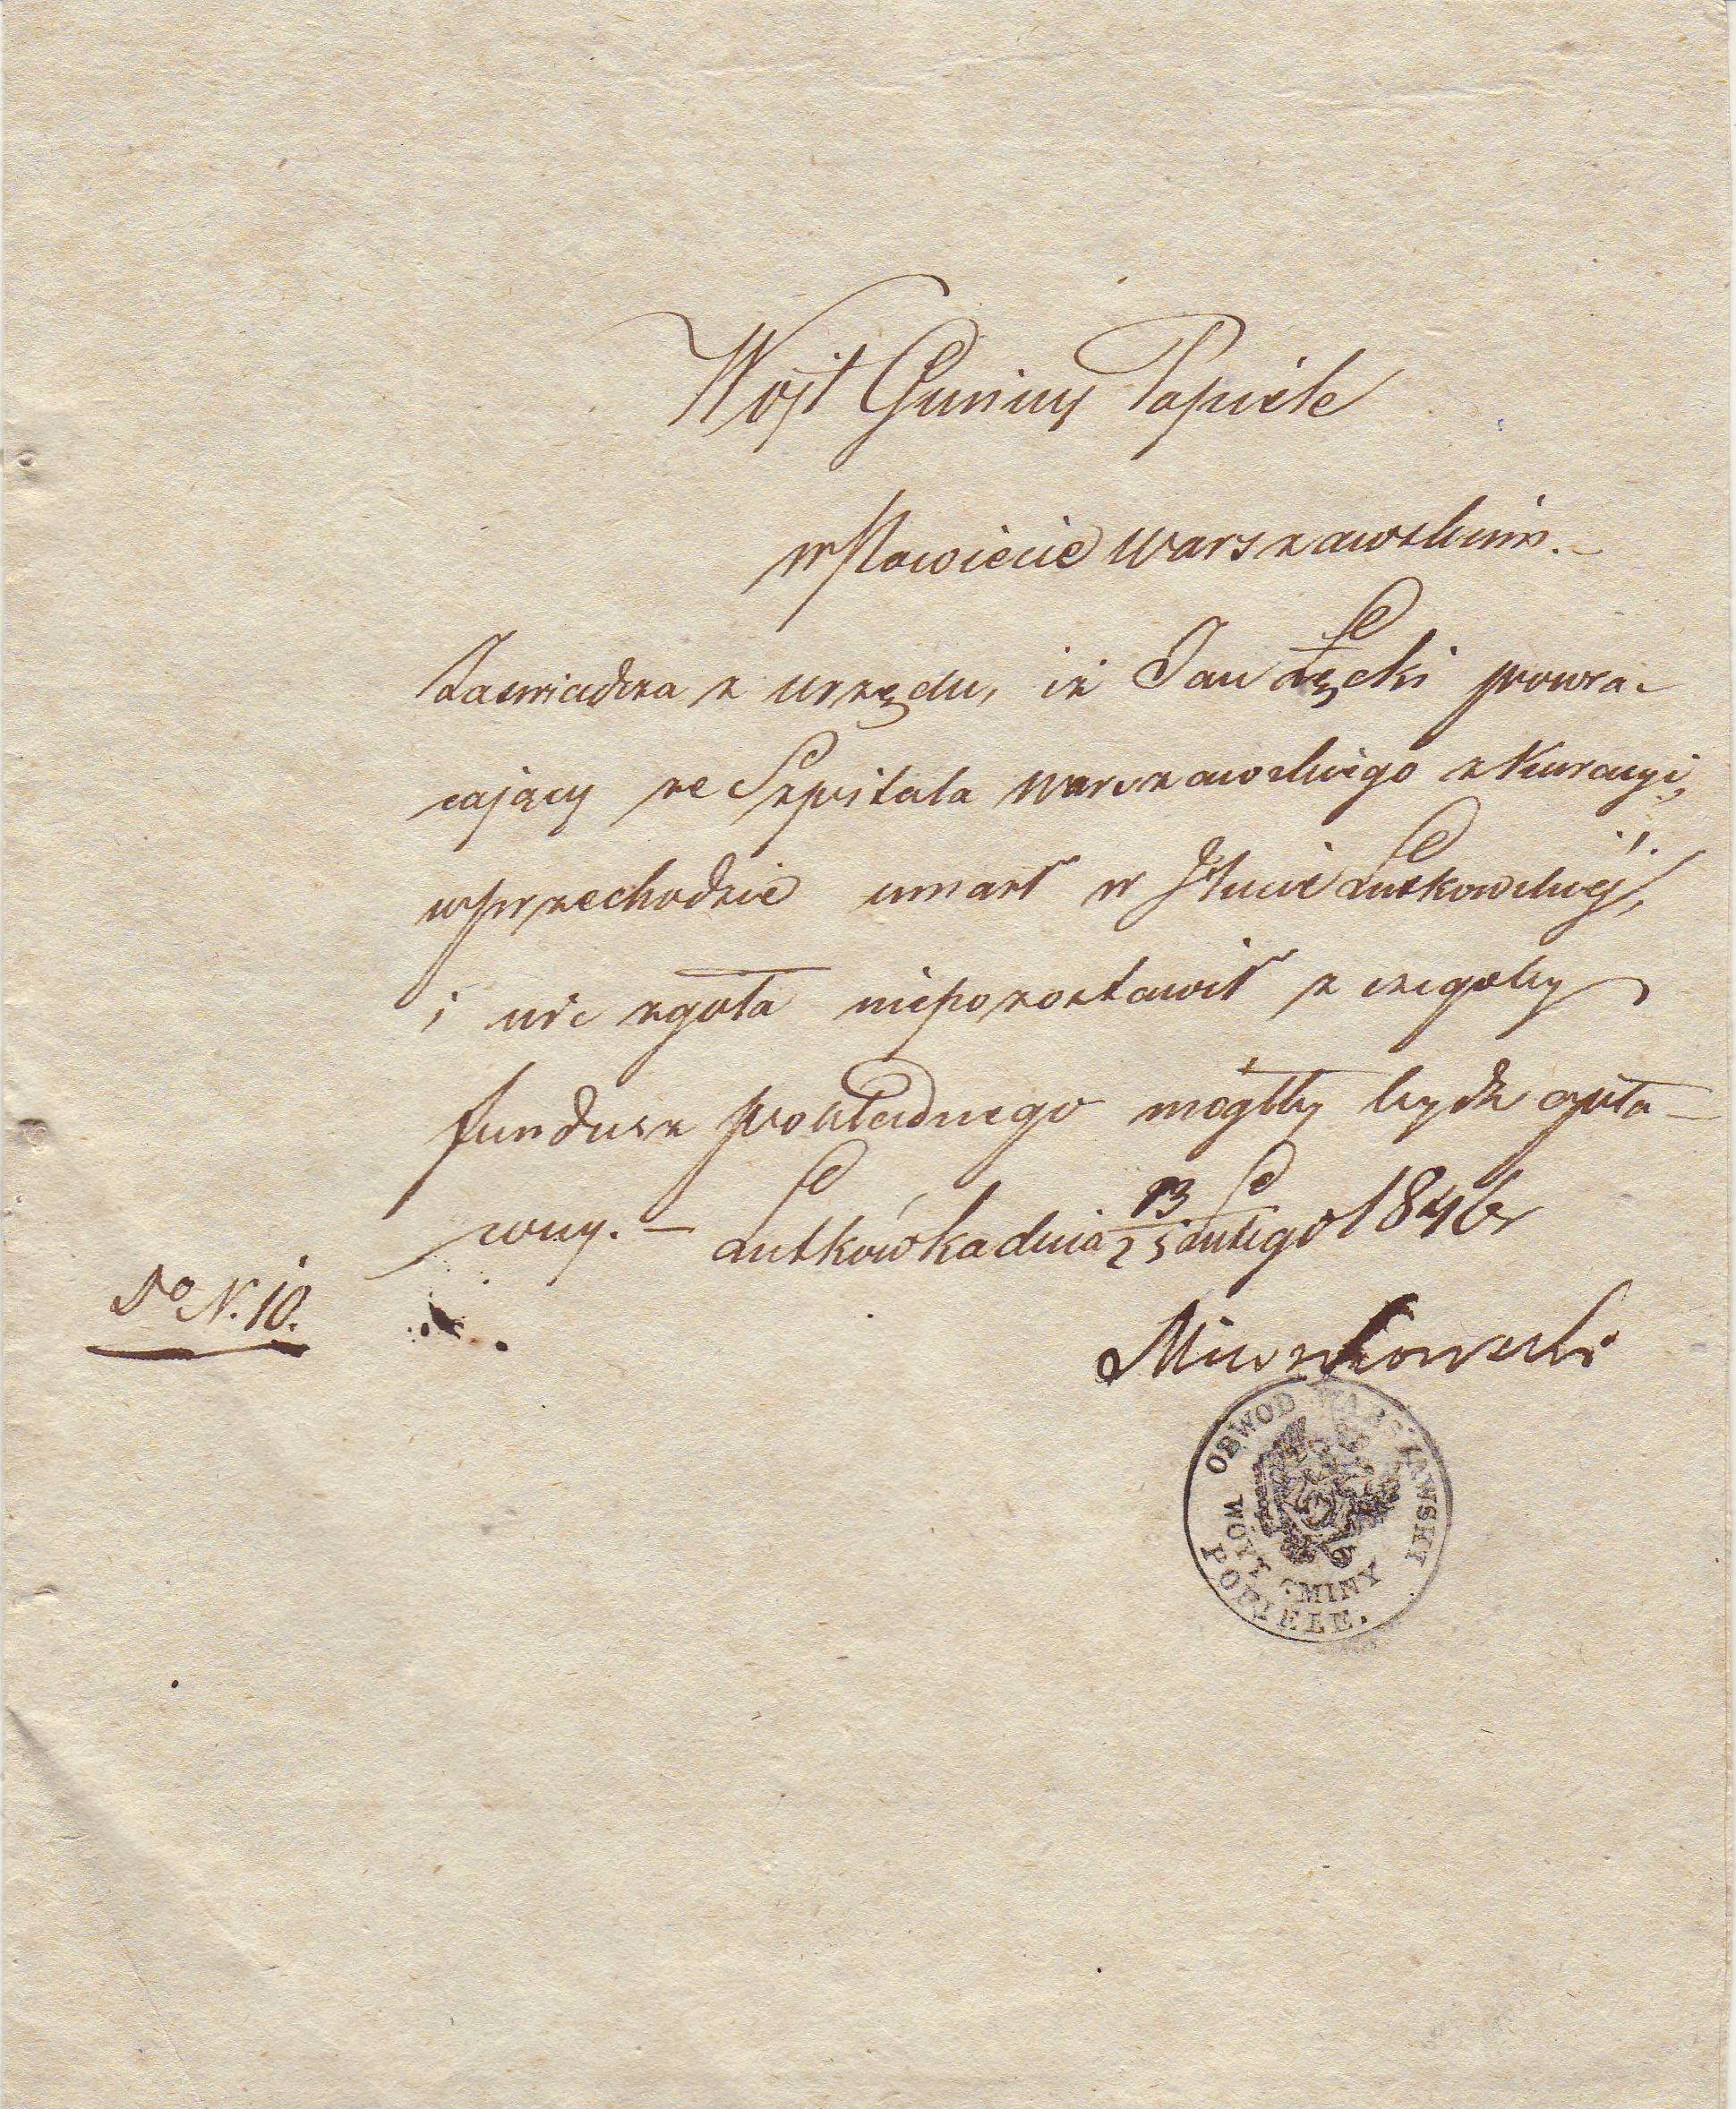 Wójt Gminy Popiele
w Powiecie Warszawskim. –
Zaswiadcza z urzędu, iż Jan Łęcki powra-
cający ze Szpitala Warszawskiego z Kuracyi,
w przechodzie umarł w Hucie Lutkowskiej,
i nic zgoła niepozostawił z czegoby
fundusz pokładnego mógłby bydź opła-
cony. – Lutkówka dnia 13/25 Lutego 1846 r
Do N. 10.
OBWOD WARSZAWSKI
WOYT GMINY
POPIELE.